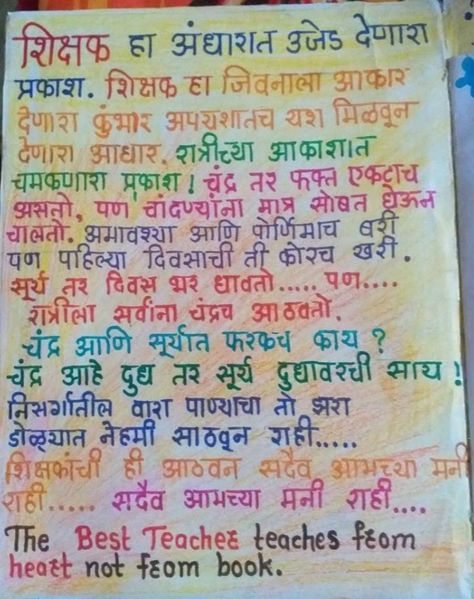 शिक्षक हा अंधारात उजेड देणारा
प्रकाश. शिक्षक हा जिवनाला आकार
देणारा कुंभार अपयशातच यश मिळवून
देणारा आधार. रात्रीच्या आकाशात
चमकणारा प्रकाश! चंद्र तर फक्त एकटाच
असतो, पण चांदण्यांना मात्र सोबत घेऊन
चालतो. अमावश्या आणि पोर्णिमाच बरी
पण पहिल्या दिवसाची ती कोरच खरी.
सूर्य तर दिवस भर धावतो..... पण....
रात्रीला सर्वांना चंद्रच आठवतो.
चंद्र आणि सूर्यात फरकच काय ?
चंद्र आहे दुध तर सूर्य दुधावरची साय !
निसर्गातील वारा पाण्याचा तो झरा
डोळ्यात नेहमी साठवून राही.....
शिक्षकांची ही आठवन सदैव आमच्या मनी
राही..... सदैव आमच्या मनी राही....
The Best Teacher teaches from
heart not from book.